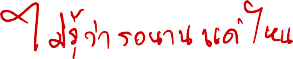 ไม่รู้ว่ารอนานแค่ไหน